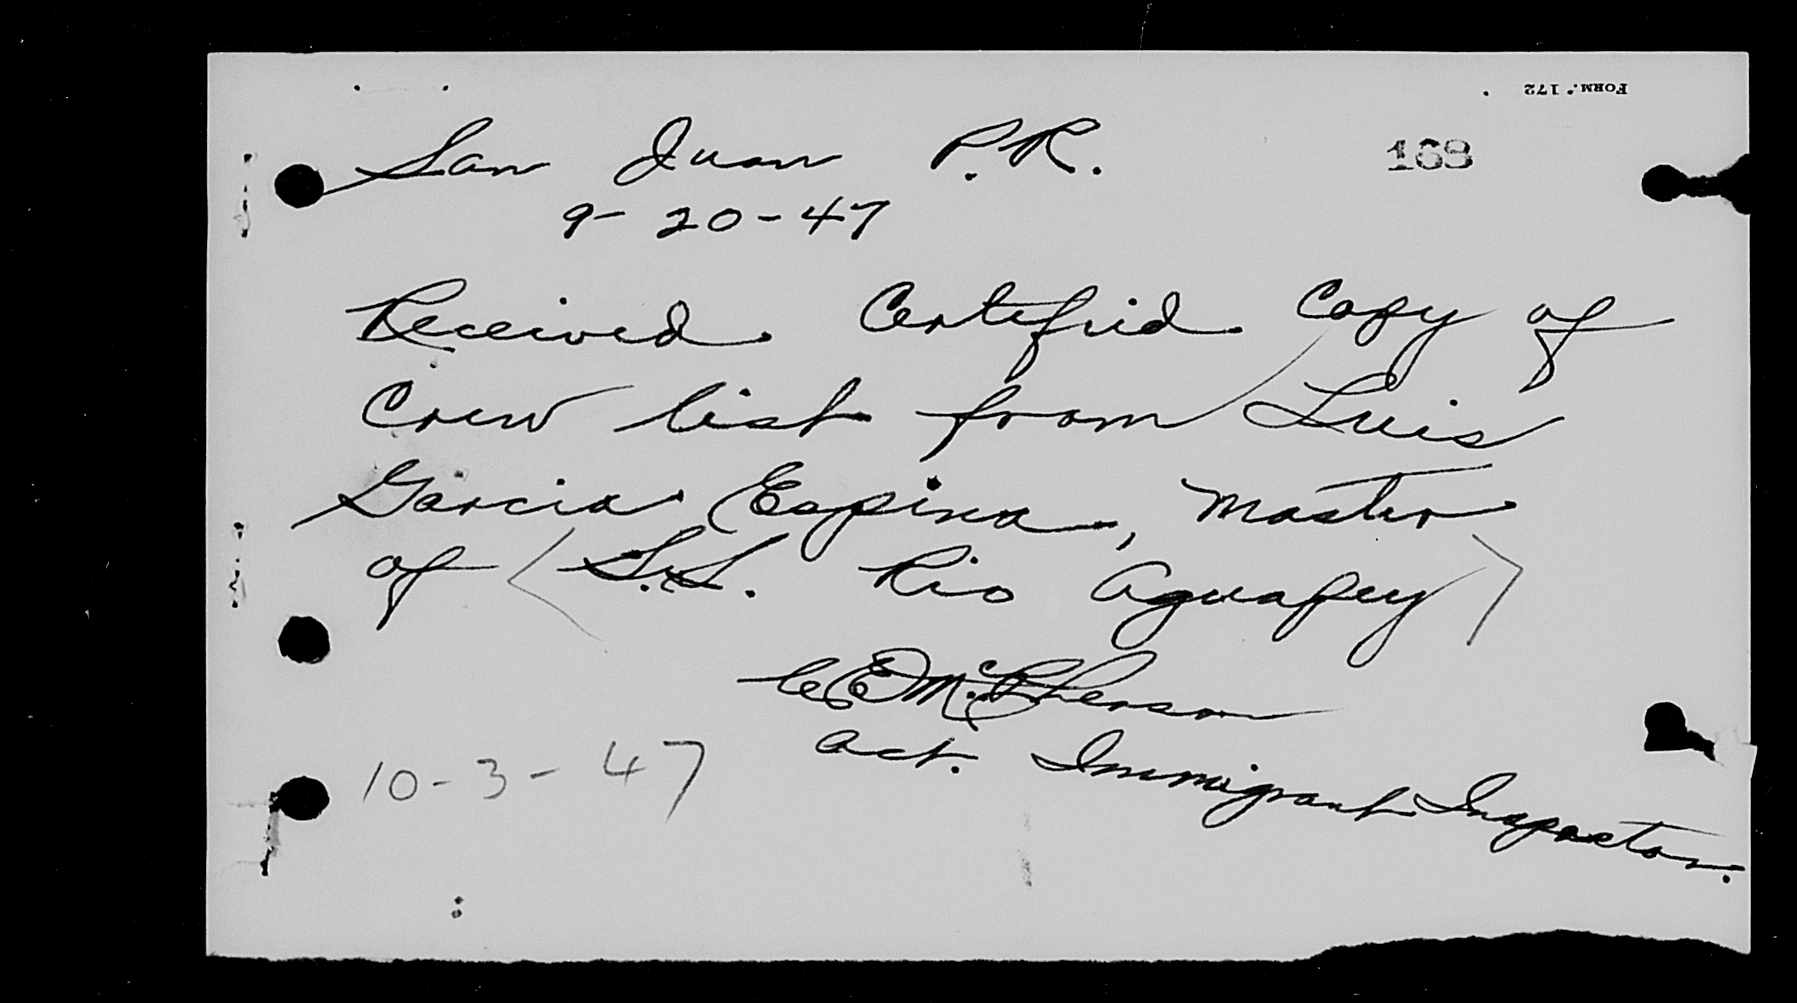 FORM. 172
San Juan P.R.
168
9-20-47
Received Certified Copy of
Crew list from Luis
Garcia Espina, Master
of < S.S. Rio Aguapey >
C E McPherson
Act. Immigrant Inspector.
10-3-47